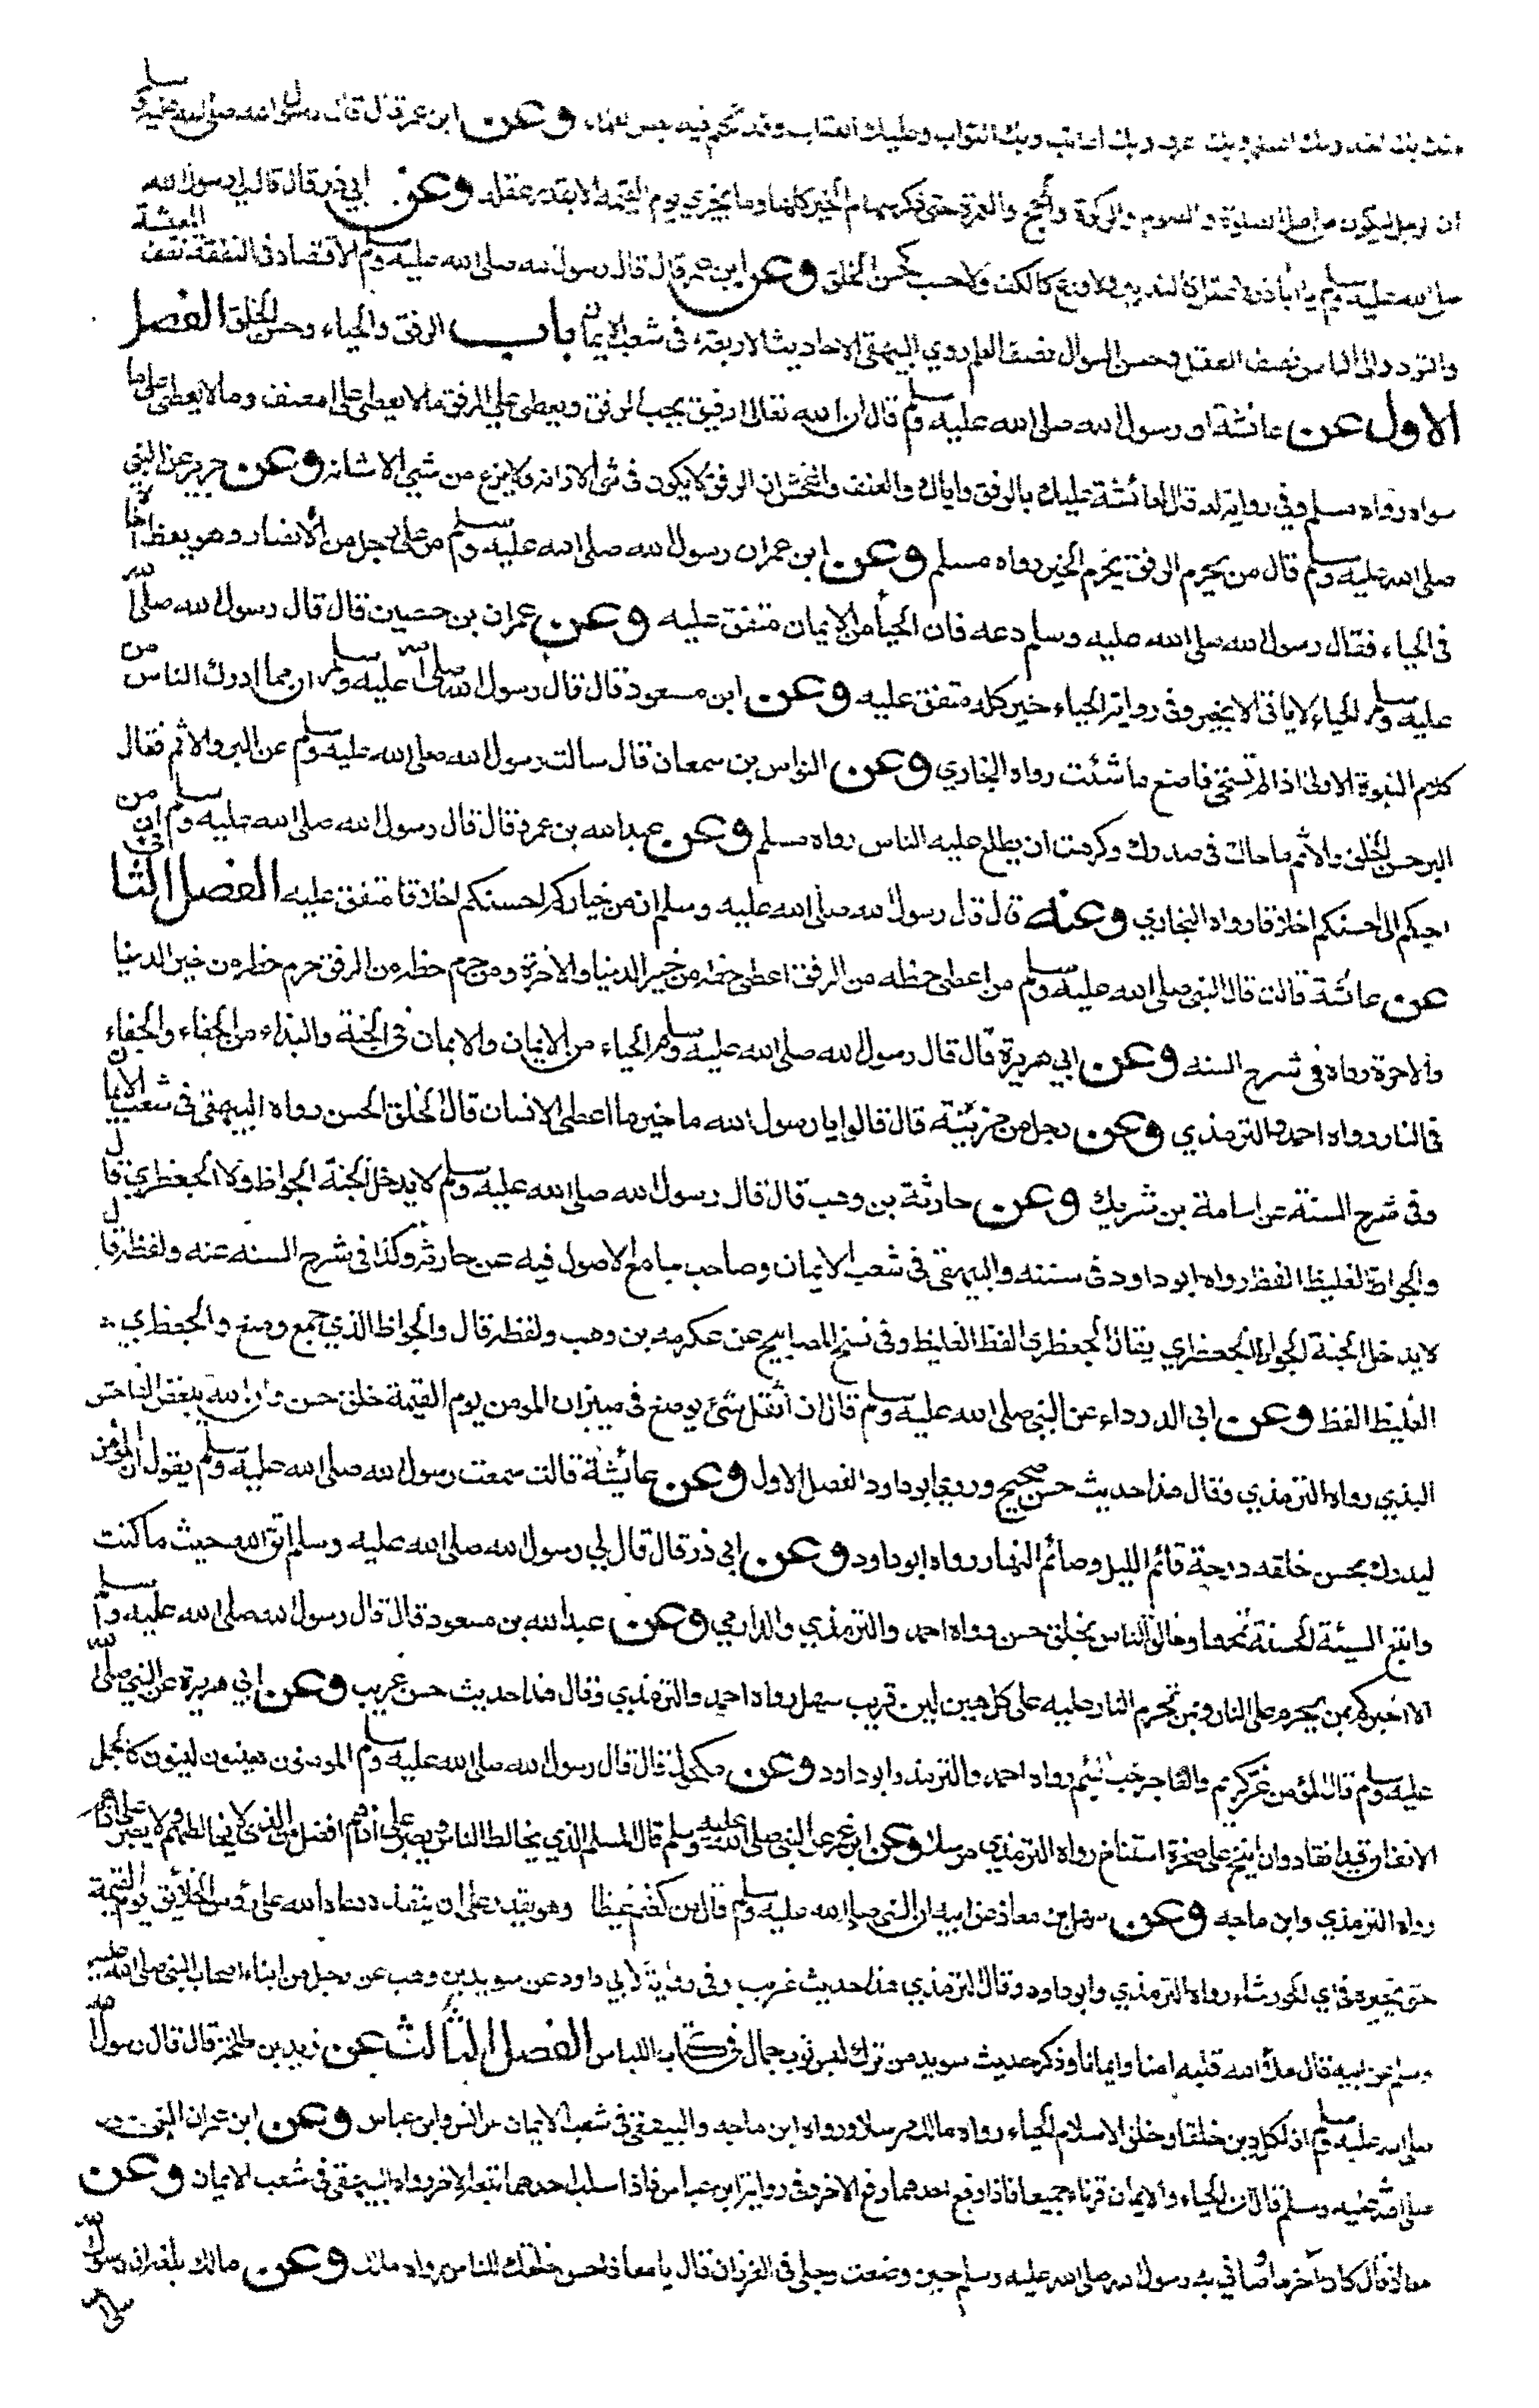 وبك اعرف وبك اعاتب وبك الثواب وعليك العقاب وقد تكلم فيه بعض العلماء وعن ابن عمر قال قال رسول الله صلى الله عليه وسلم
ان الرجل ليكون من اهل الصلوة والصوم والزكوة والحج والعمرة حتى ذكر سهام الخير كلها وما يجزي يوم القيمة الا بقدر عقله وعن ابي ذر قال قال لي رسول الله
صلى الله عليه وسلم يا ابا ذر لا عقل كالتدبير ولا ورع كالكف ولا حسب كحسن الخلق وعن ابن عمر قال قال رسول الله صلى الله عليه وسلم الاقتصاد في النفقة نصف المعيشة
والتودد الى الناس نصف العقل وحسن السوال نصف العلم روي البيهقي الاحاديث الاربعة في شعب الايمان باب الرفق والحياء وحسن الخلق الفصل
الاول عن عائشة ان رسول الله صلى الله عليه وسلم قال ان الله تعالى رفيق يحب الرفق ويعطى على الرفق ما لا يعطى على العنف وما لا يعطى على ما
سواه رواه مسلم وفي رواية له قال لعائشة عليك بالرفق واياك والعنف والفحش ان الرفق لا يكون في شئ الا زانه ولا ينزع من شيئ الا شانه وعن جرير عن النبي
صلى الله عليه وسلم قال من يحرم الرفق يحرم الخير رواه مسلم وعن ابن عمر ان رسول الله صلى الله عليه وسلم مر على رجل من الانصار وهو يعظ اخاه
في الحياء فقال رسول الله صلى الله عليه وسلم دعه فان الحياء من الايمان متفق عليه وعن عمران بن حصين قال قال رسول الله صلى الله
عليه وسلم الحياء لا ياتي الا بخير وفي رواية الحياء خير كله متفق عليه وعن ابن مسعود قال قال رسول الله صلى الله عليه وسلم ان مما ادرك الناس من
كلام النبوة الاولى اذا لم تستحي فاصنع ما شئت رواه البخاري وعن النواس بن سمعان قال سالت رسول الله صلى الله عليه وسلم عن البر والاثم فقال
البر حسن الخلق والاثم ما حاك في صدرك وكرهت ان يطلع عليه الناس رواه مسلم وعن عبد الله بن عمرو قال قال رسول الله صلى الله عليه وسلم ان من
احبكم الى احسنكم اخلاقا رواه البخاري وعنه قال قال رسول الله صلى الله عليه وسلم ان من خياركم احسنكم اخلاقا متفق عليه الفصل الثاني
عن عائشة قالت قال النبي صلى الله عليه وسلم من اعطى حظه من الرفق اعطى حظه من خير الدنيا والاخرة ومن حرم حظه من الرفق حرم حظه من خير الدنيا
والاخرة رواه في شرح السنه وعن ابي هريرة قال قال رسول الله صلى الله عليه وسلم الحياء من الايمان والايمان في الجنة والبذاء من الجفاء والجفاء
في النار رواه احمد والترمذي وعن رجل من مزينة قال قالوا يا رسول الله ما خير ما اعطى الانسان قال الخلق الحسن رواه البيهقي في شعب الايمان
وفي شرح السنة عن اسامة بن شريك وعن حارثة بن وهب قال قال رسول الله صلى الله عليه وسلم لا يدخل الجنة الجواظ ولا الجعظري قال
والجواظ الغليظ الفظ رواه ابو داود في سننه والبيهقي في شعب الايمان وصاحب جامع الاصول فيه عن حارثة وكذا في شرح السنه عنه ولفظه قال
لا يدخل الجنة الجواظ الجعظري يقال الجعظري الفظ الغليظ وفي نسخ المصابيح عن عكرمه بن وهب ولفظه قال والجواظ الذي جمع ومنع والجعظري
الغليظ الفظ وعن ابي الدرداء عن النبي صلى الله عليه وسلم قال ان اثقل شئ يوضع في ميزان المومن يوم القيمة خلق حسن وان الله يبغض الفاحش
البذي رواه الترمذي وقال هذا حديث حسن صحيح وروي ابو داود الفصل الاول وعن عائشة قالت سمعت رسول الله صلى الله عليه وسلم يقول ان المؤمن
ليدرك بحسن خلقه درجة قائم الليل وصائم النهار رواه ابو داود وعن ابي ذر قال قال لي رسول الله صلى الله عليه وسلم اتق الله حيث ما كنت
واتبع السيئة الحسنة تمحها وخالق الناس بخلق حسن رواه احمد والترمذي والدارمي وعن عبد الله بن مسعود قال قال رسول الله صلى الله عليه وسلم
الا اخبركم بمن يحرم على النار وبمن تحرم النار عليه على كل هين لين قريب سهل رواه احمد والترمذي وقال هذا حديث حسن غريب وعن ابي هريرة عن النبي صلى الله
عليه وسلم قال المؤمن غر كريم والفاجر خب لئيم رواه احمد والترمذي وابو داود وعن مكحول قال قال رسول الله صلى الله عليه وسلم المومنون هينون لينون كالجمل
الانف ان قيد انقاد وان انيخ على صخرة استناخ رواه الترمذي مرسلا وعن ابن عمر عن النبي صلى الله عليه وسلم قال المسلم الذي يخالط الناس ويصبر على اذاهم افضل من الذي لا يخالطهم ولا يصبر على اذاهم
رواه الترمذي وابن ماجه وعن سهل بن معاذ عن ابيه ان النبي صلى الله عليه وسلم قال من كظم غيظا وهو يقدر على ان ينفذه دعاه الله على رؤس الخلائق يوم القيمة
حتى يخيره في اي الحور شاء رواه الترمذي وابو داود وقال الترمذي هذا حديث غريب وفي رواية لابي داود عن سويد بن وهب عن رجل من ابناء اصحاب النبي صلى الله عليه
وسلم عن ابيه قال ملأ الله قلبه امنا وايمانا وذكر حديث سويد من ترك لبس ثوب جمال في كتاب اللباس الفصل الثالث عن زيد بن طلحة قال قال رسول الله
صلى الله عليه وسلم ان لكل دين خلقا وخلق الاسلام الحياء رواه مالك مرسلا ورواه ابن ماجه والبيهقي في شعب الايمان عن انس وابن عباس وعن ابن عمر ان النبي
صلى الله عليه وسلم قال ان الحياء والايمان قرناء جميعا فاذا رفع احدهما رفع الاخر وفي رواية ابن عباس فاذا سلب احدهما تبعه الاخر رواه البيهقي في شعب الايمان وعن
معاذ قال كان اخر ما وصاني به رسول الله صلى الله عليه وسلم حين وضعت رجلي في الغرز ان قال يا معاذ احسن خلقك للناس رواه مالك وعن مالك بلغه ان رسول الله